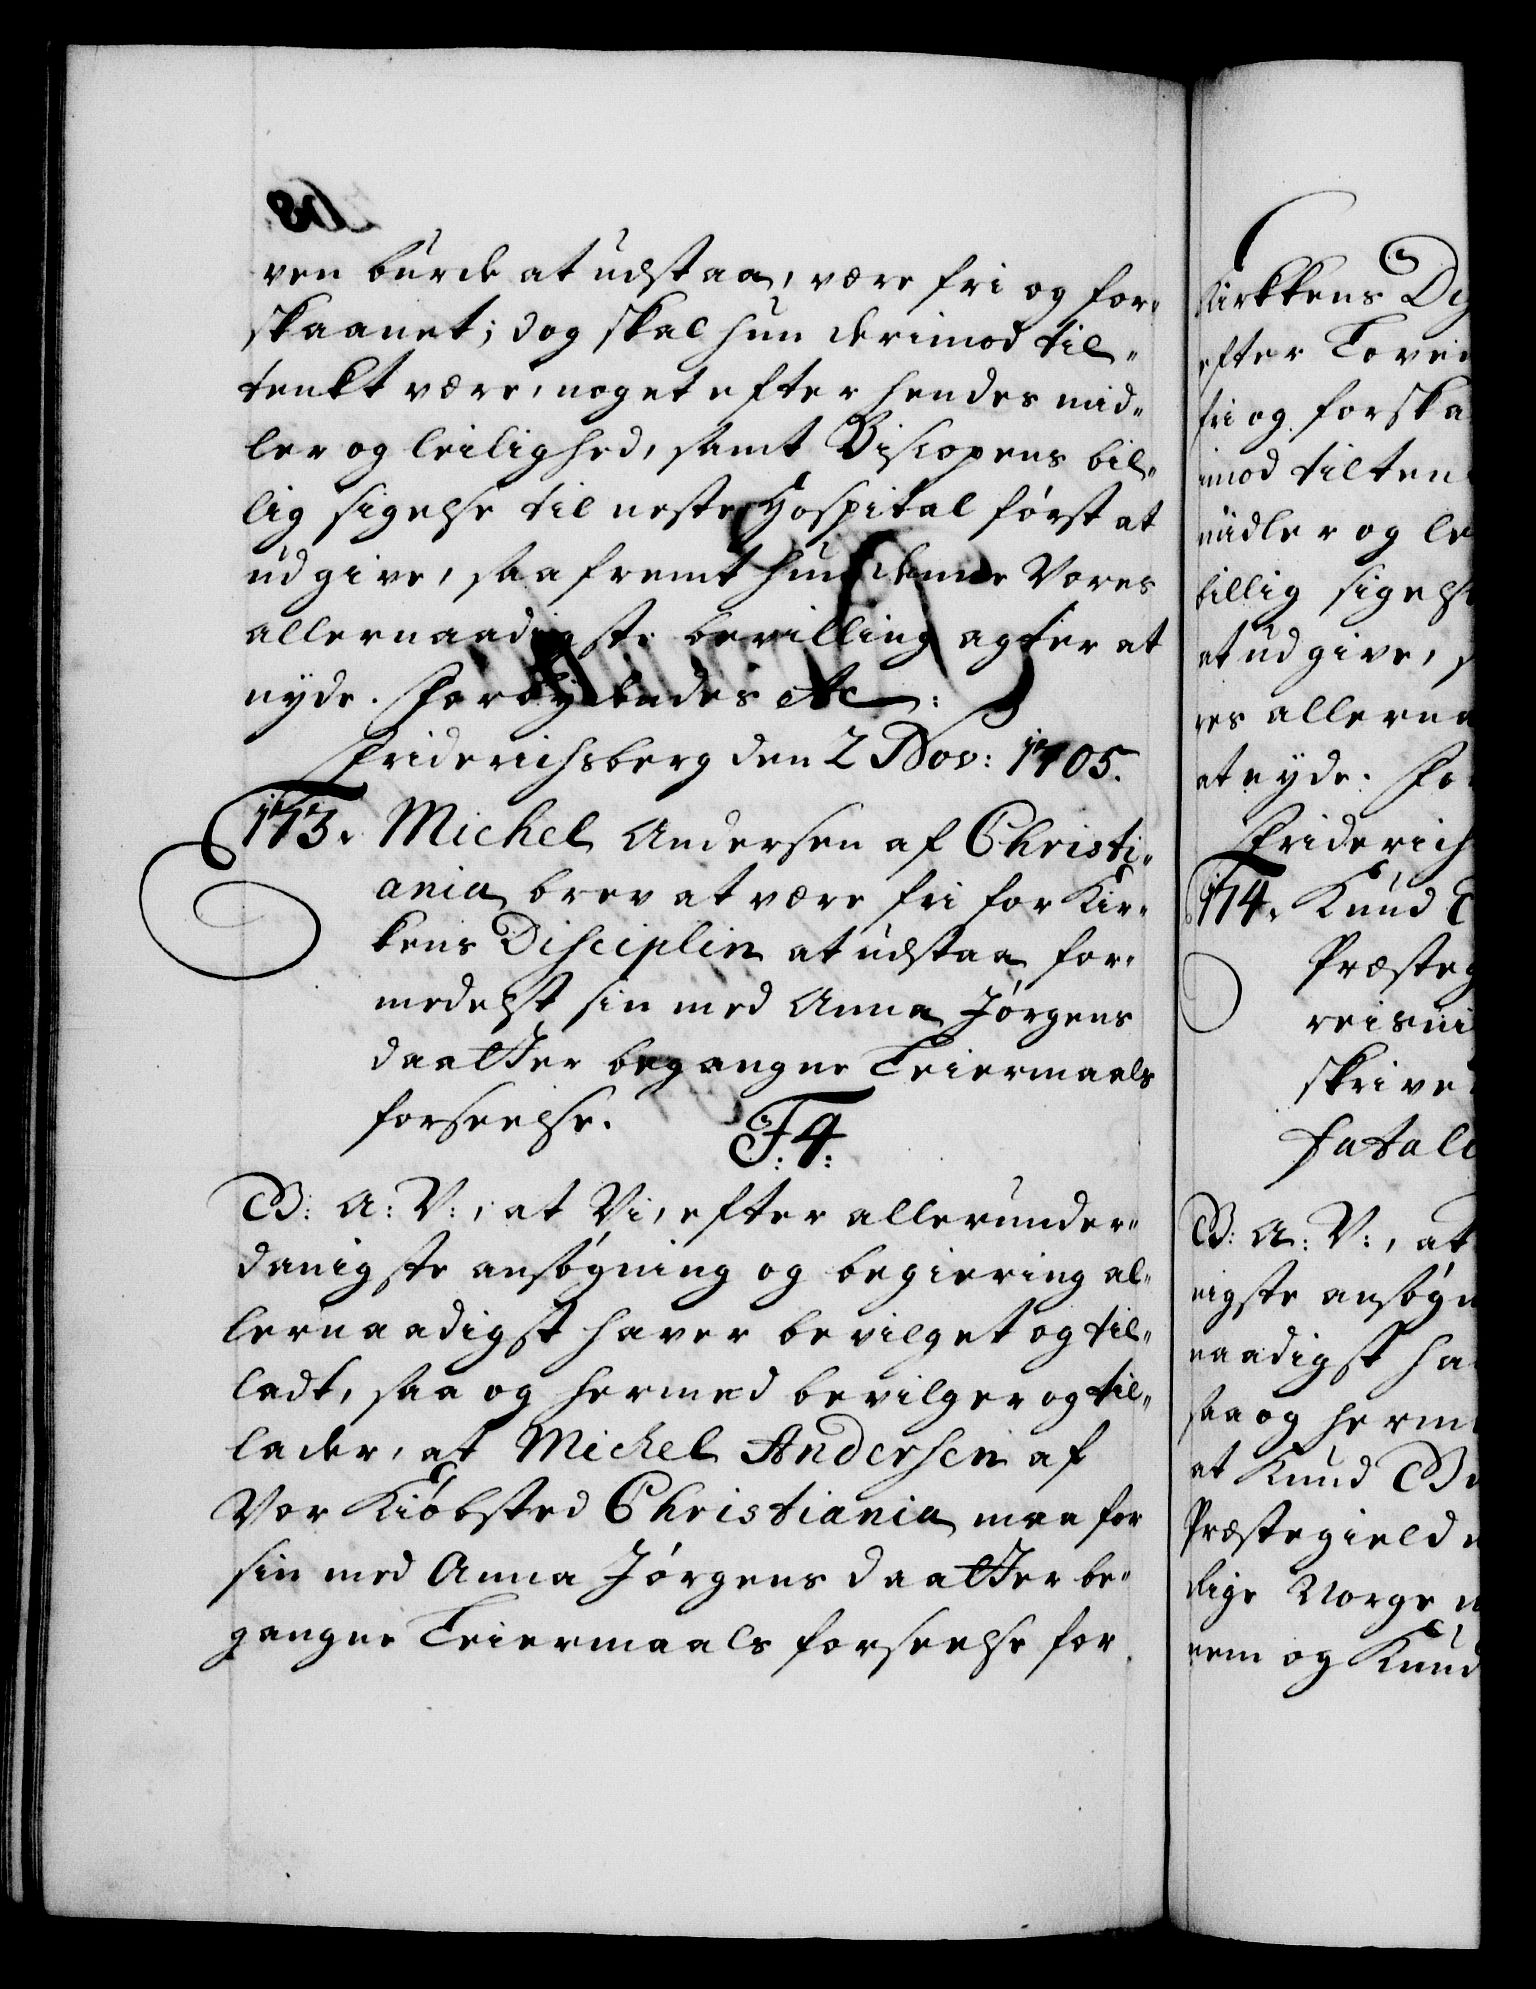 ven burde at udstaa, være fri og for-
skaanet; dog skal hun derimod til-
tenkt være, noget efter hendes mid-
ler og leilighed, samt Biscopens bil-
lig sigelse til neste Hospital først at
udgive, saafremt hun denne Vores
allernaadigste bevilling agter at
nyde. Forbydendes etc:
Friderichsberg den 2 Nov: 1705.
173. Michel Andersen af Christi-
ania brev at være fri for Kir-
kens Disciplin at udstaa for-
medelst sin med Anna Jörgens
daatter begangne Leiermaals
forseelse.
F: 4:
G: A: V:, at Vi, efter allerunder-
danigste ansøgning og begiering al-
lernaadigst haver bevilget og til-
ladt, saa og hermed bevilger og til-
lader, at Michel Andersen af
Vor Kiöbsted Christiania maa for
sin med Anna Jörgens daatter be-
gangne Leiermaals forseelse for
Kirkkens Di
efter Loven
fri og forska
imod tilten
midler og le
billig sigelse
at udgive, s
res allerna
at nyde. Fo
Friderich
174. Knud
Præsteg
reisni
skrive
fatale
G: A: V:, at
nigste ansøgn
naadigst ha
saa og herm
at Knud
Præstegield
rige Norge
nem og Knud